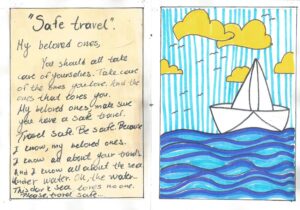 "Safe travel".
My beloved ones,
You should all take
care of yourselves. Take care
of the ones you love. And the
ones that loves you.
My beloved ones make sure
you have a safe travel.
Travel safe. Be safe. Because
I know, my beloved ones.
I know all about your travels
And I know all about the sea.
Under water. Oh, the water.
This dark sea loves no one.
Please, travel safe...